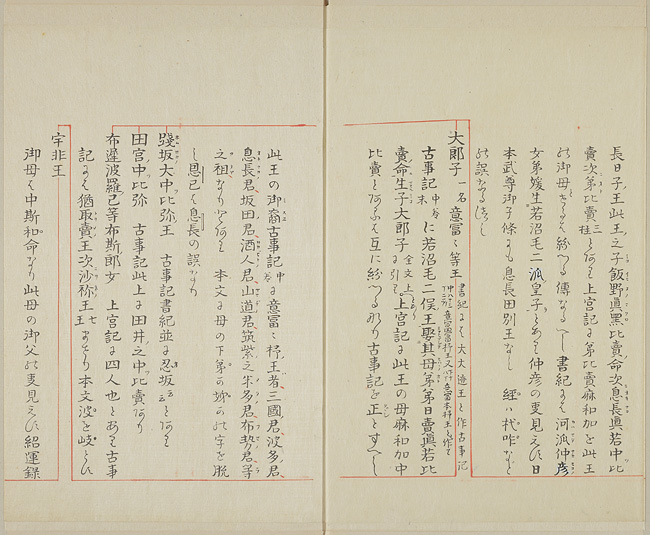 長日子王此王之子飯野眞黒比賣命次息長眞若中比
賣次第比賣三柱とあるを上宮記に第比賣麻和加を此王
の御母とするは紛つる傳なるへし書紀には河派仲彦
女弟媛生若沼毛二派皇子とあるも仲彦の更見えす日
本武尊御子條にも息長田別王なし
の誤なるへし
大郎子一名意冨〻等王
古事記中に若沼毛二俣王娶其母弟弟日賣眞若比
賣命生子大郎子全文上に引り上宮記に此王の母麻和加中
比賣とあるは互に紛つる那り古事記を正とすへし
此王の御裔古事記中に意冨〻杼王者三國君波多君
息長君坂田君酒人君山道君筑紫之米多君布勢君等
之祖なりとあるを本文に母の下第の の字を脱
し息已は息長の誤なり
踐坂大中比弥王 古事記書紀並に忍坂とあり
田宮中比弥 古事記此上に田井之中比賣あり
布遅波羅己等布斯郎女 上宮記に四人也とあるを古事
記には猶取賣王次沙祢王七王あり本文波を岐とし
宇非王
御母は中斯和命なり此母の御父の更見えす紹運録